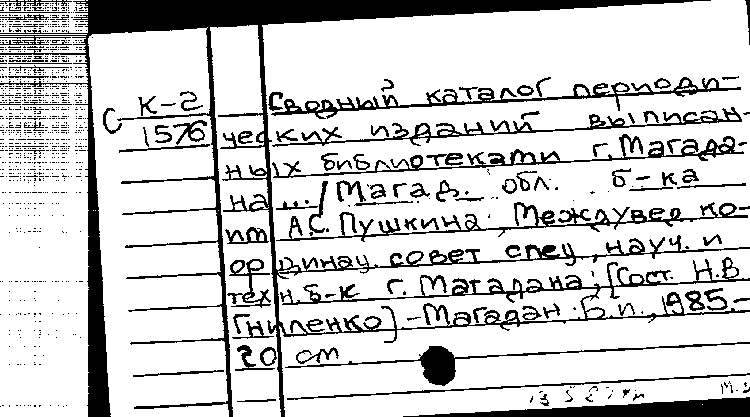 С К-2
1576
Сводный каталог периоди-
ческих изданий выписан-
ных библиотеками г. Магада-
на .../Магад. обл. б-ка
им А.С. Пушкина; Междувед ко-
ординац. совет спец, науч. и
техн. б-к г. Магадана; [Сост. Н.В
Гниленко] - Магадан: Б.и., 1985.-
20 см.